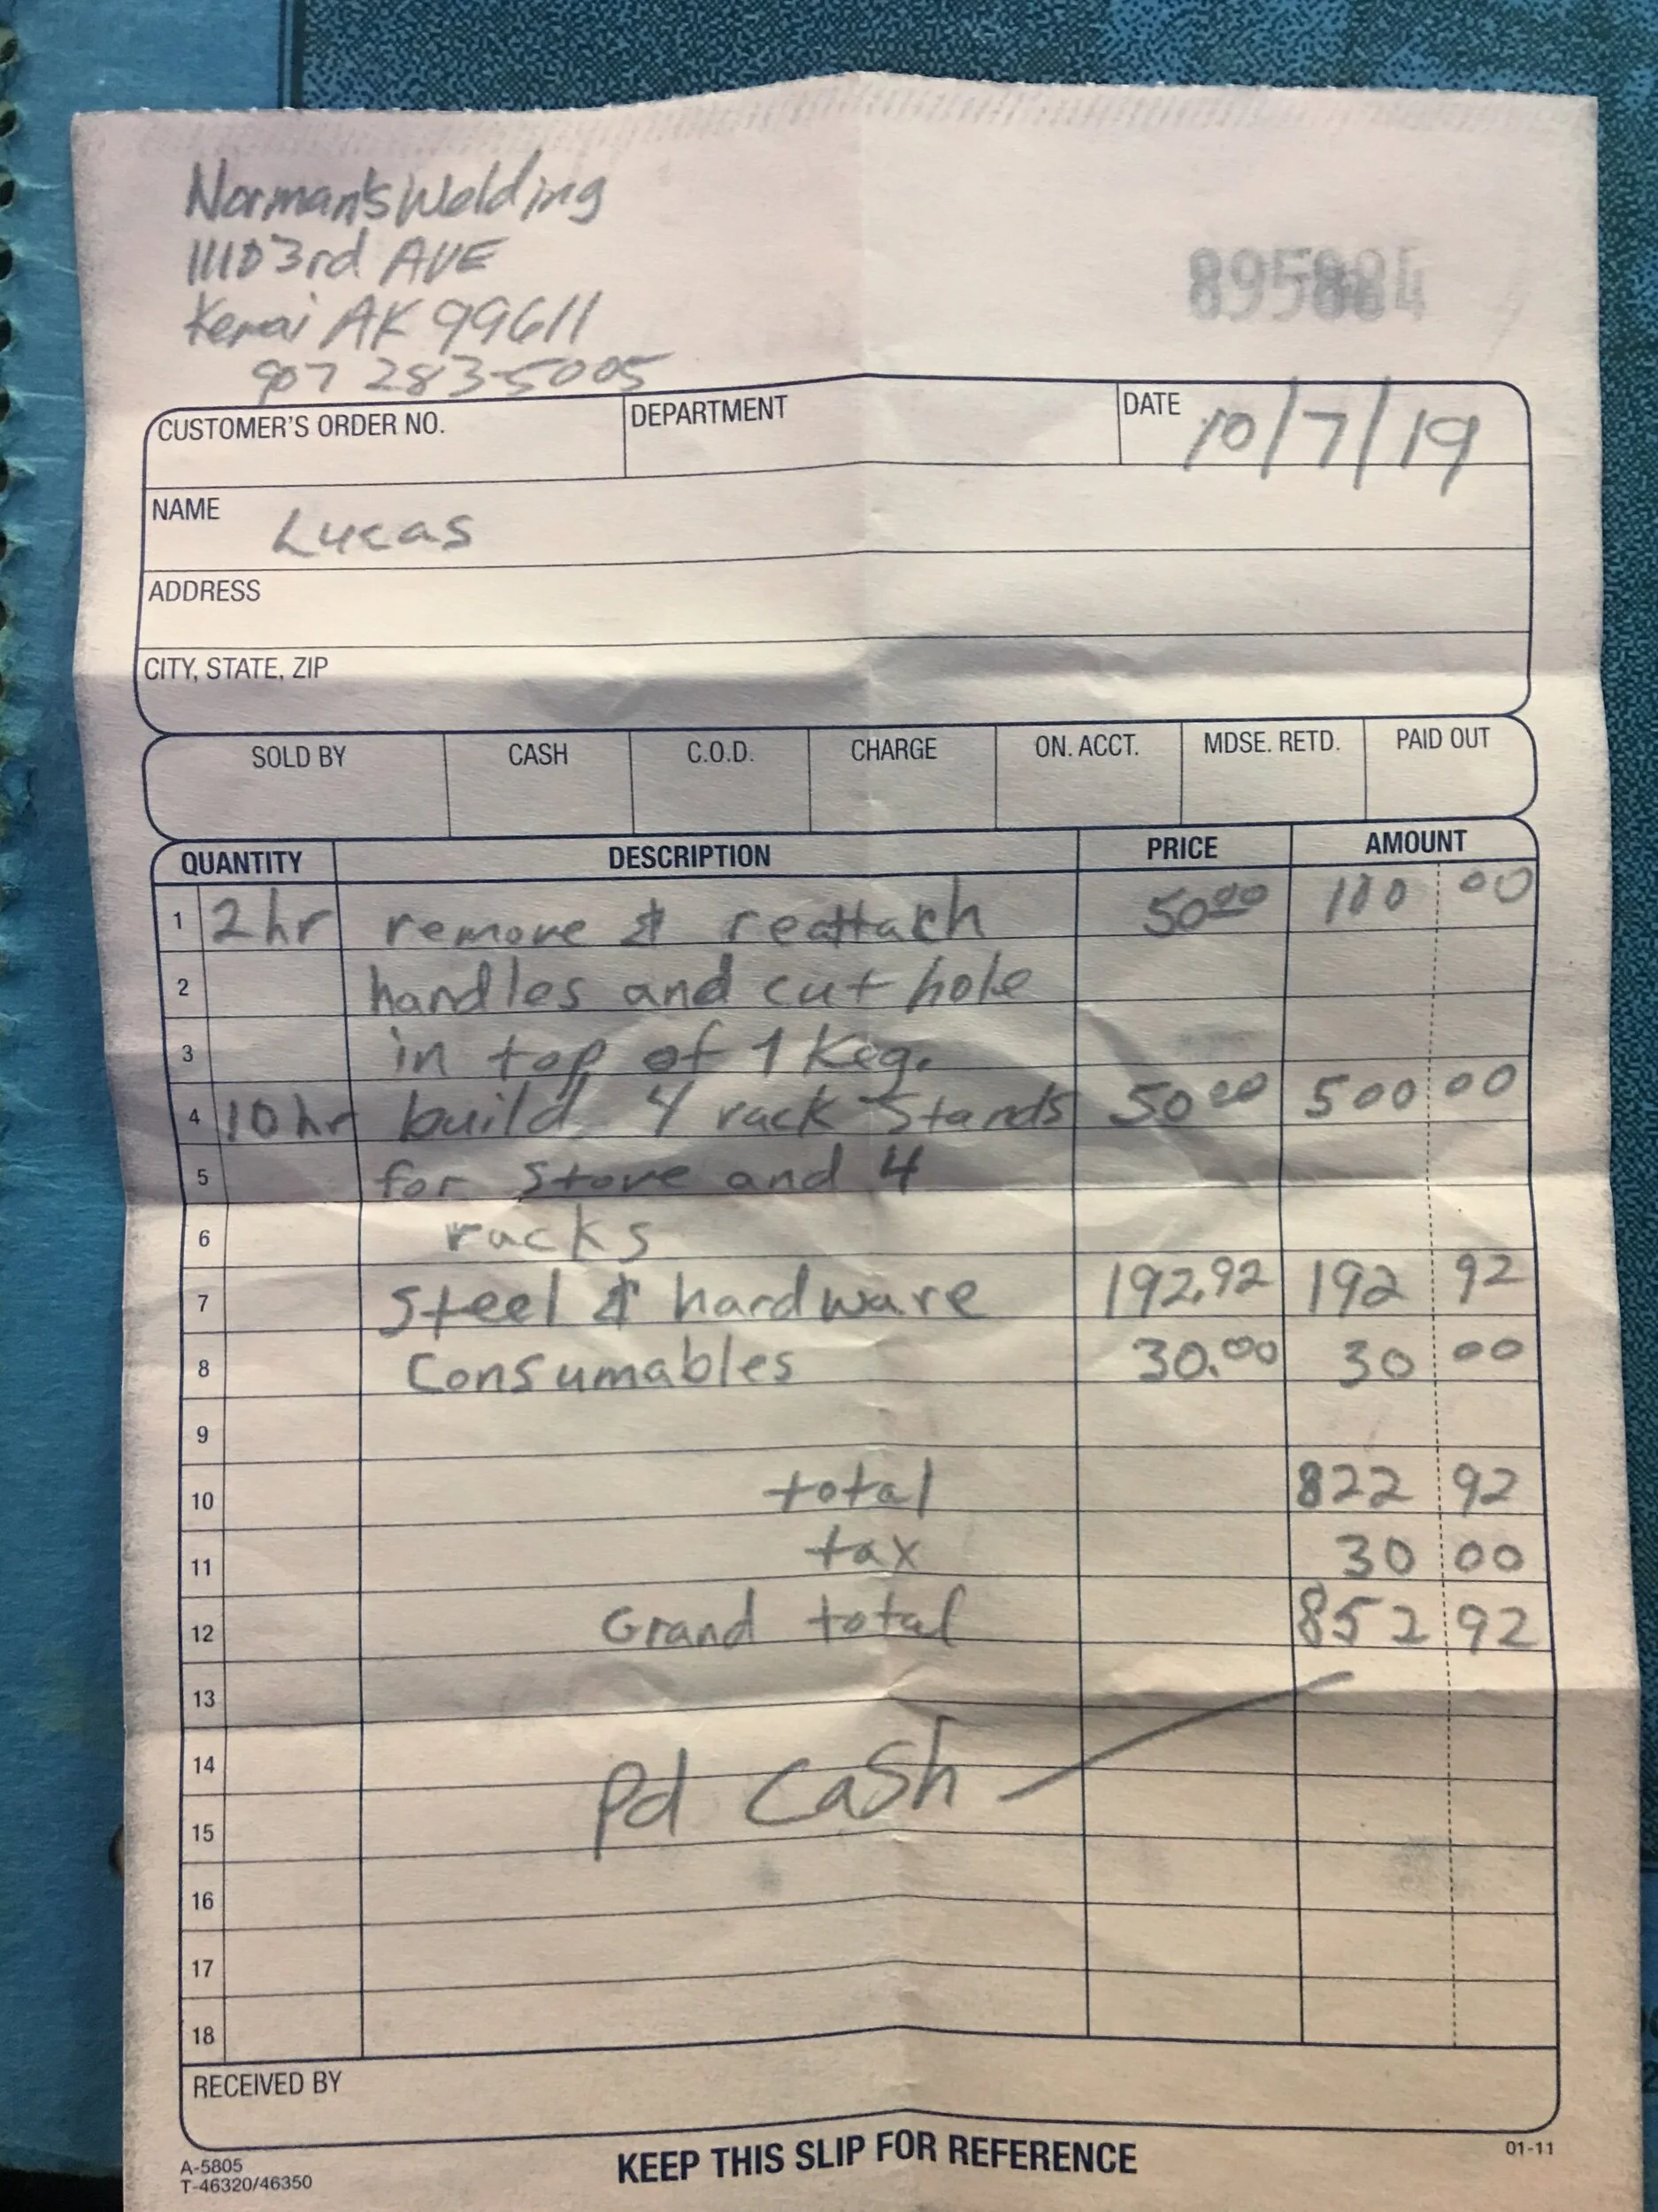 Norman's Welding
11110 3rd AVE
Kenai AK 99611
907 283-5005
CUSTOMER'S ORDER NO. DEPARTMENT DATE 10/7/19
NAME Lucas
ADDRESS
CITY, STATE, ZIP
SOLD BY CASH C.O.D. CHARGE ON. ACCT. MDSE. RETD. PAID OUT
QUANTITY DESCRIPTION PRICE AMOUNT
1 2 hr remove & reattach 50 00 100 00
2 handles and cut hole
3 in top of 1 Keg.
4 10 hr build 4 rack Stands 50 00 500 00
5 for Stove and 4
6 racks
7 Steel & hardware 192.92 192 92
8 Consumables 30.00 30 00
9
10 total 822 92
11 tax 30 00
12 Grand total 852 92
13
14
Pd Cash
15
16
17
18
RECEIVED BY
A-5805
T-46320/46350
KEEP THIS SLIP FOR REFERENCE
01-11